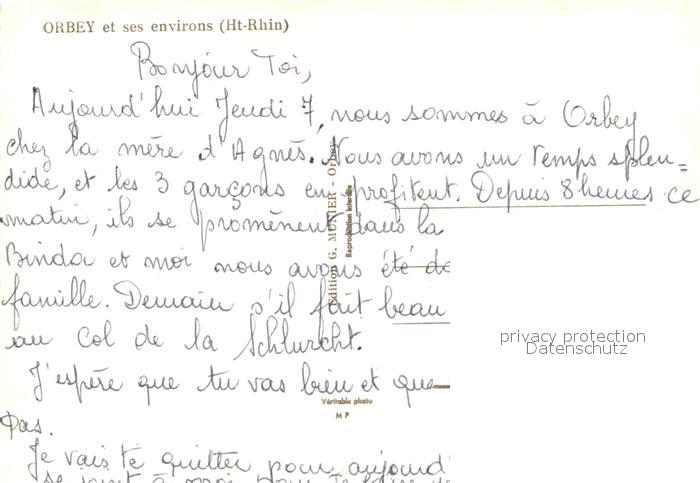 ORBEY et ses environs (Ht-Rhin)
Bonjour Toi,
Aujourd'hui Jeudi 7, nous sommes à Orbey
chez la mère d'Agnès. Nous avons un temps splen=
dide, et les 3 garçons en profitent. Depuis 8 heures ce
matin, ils se promènent dans la
Binda et moi nous avons été de
famille. Demain s'il fait beau
au Col de la Schlurcht.
J'espère que tu vas bien et que
pas.
Je vais te quitter pour aujourd'
se
Edition G. MUNIER - Orbey
Reproduction interdite
Véritable photo
M P
privacy protection
Datenschutz